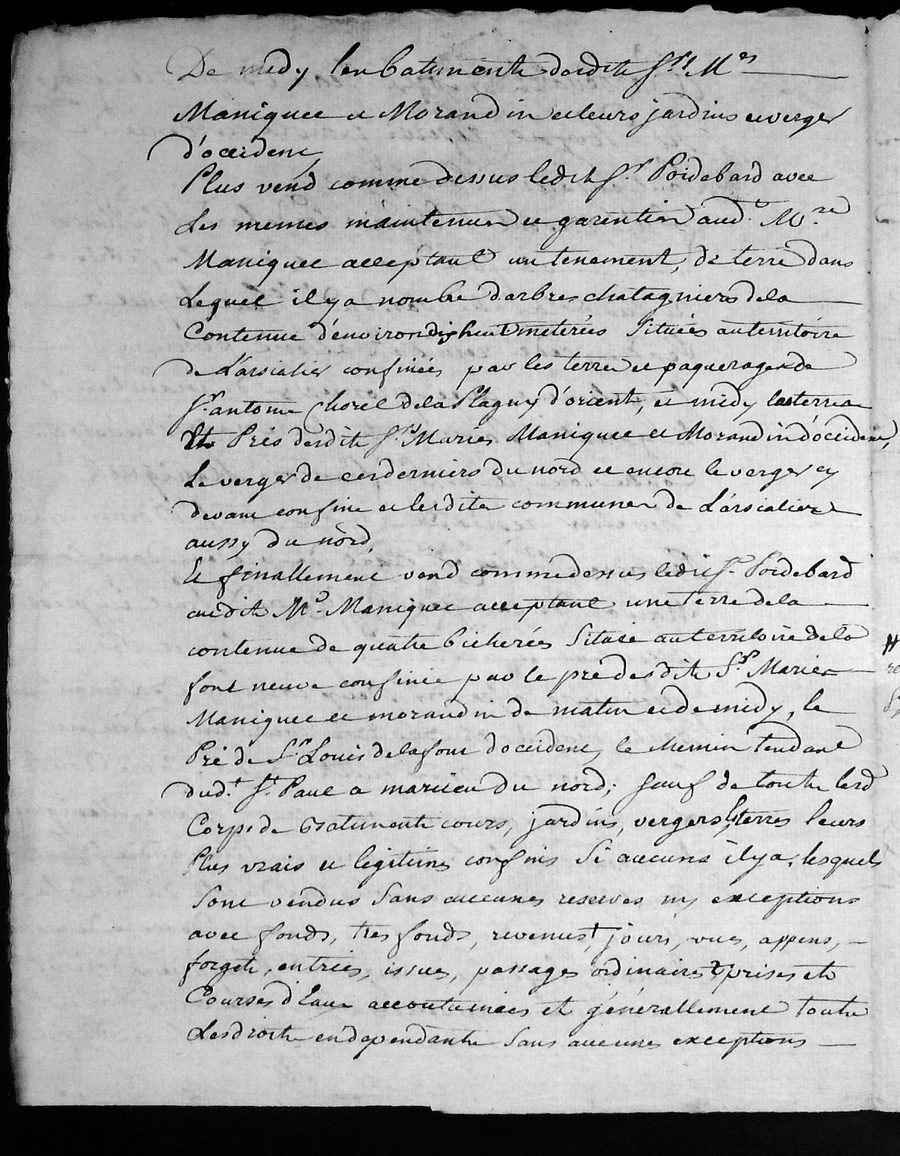 De midy les batiments desdits Srs Mrs
Maniquet et Morandin et leurs jardins et verger
d'occident
Plus vend comme dessus ledit Sr. Poidebard avec
les memes maintenues et garention audt. Mre.
Maniquet acceptant un tenement de terre dans
Lequel il y a nombre d'arbres chatagniers de la
Contenue d'environ dix huit meterées Situées au territoire
de L'arsialier confinées par les terre et paquerages de
Sr. antoine Chorel de la Plagny d'orient, et midy les terres
et Prés desdits Srs Maries Maniquet et Morandin d'occident,
Le verger de ces derniers du nord et encore le verger cy
devant confine et lesdite communes de L'arsialier
aussy du nord.
Et finallement vend comme dessus ledit Sr. Poidebard
audit Mr. Maniquet acceptant une terre de la
contenue de quatre bicherées Située au territoire de la
font neuve confinée par le pré desdits Srs. Maries
Maniquet et morandin de matin et de midy, le
Pré de Sr. Louis de lafont d'occident, le chemin tendant
dudt. St. Paul a marieu du nord; Sauf de toutes lesd
Corps de Batiments cours, jardins, vergers et terres leurs
Plus vrais et legitimes confins Si aucuns il y a, lesquels
Sont vendus Sans aucunes reserves ny exceptions
avec fonds, tres fonds, revenus, jours, vues, appens,
forgets, entrées, issues, passages ordinaires prises et
Courses d'Eaux accoutumées et générallement toutes
Les droits en dependants Sans aucunes exceptions